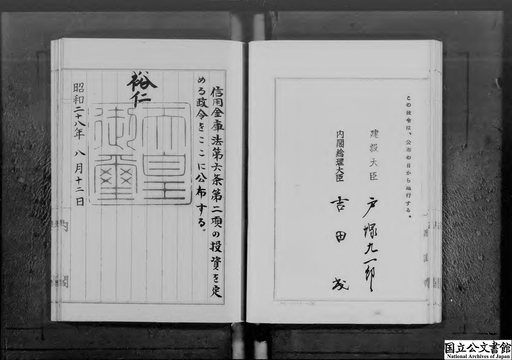 この政令は、公布の日から施行する。
建設大臣 戸塚九一郎
内閣総理大臣 吉田茂
信用金庫法第六条第二項の投資を定
める政令をここに公布する。
裕仁
天皇御璽
昭和二十八年八月十二日
国立公文書館
National Archives of Japan